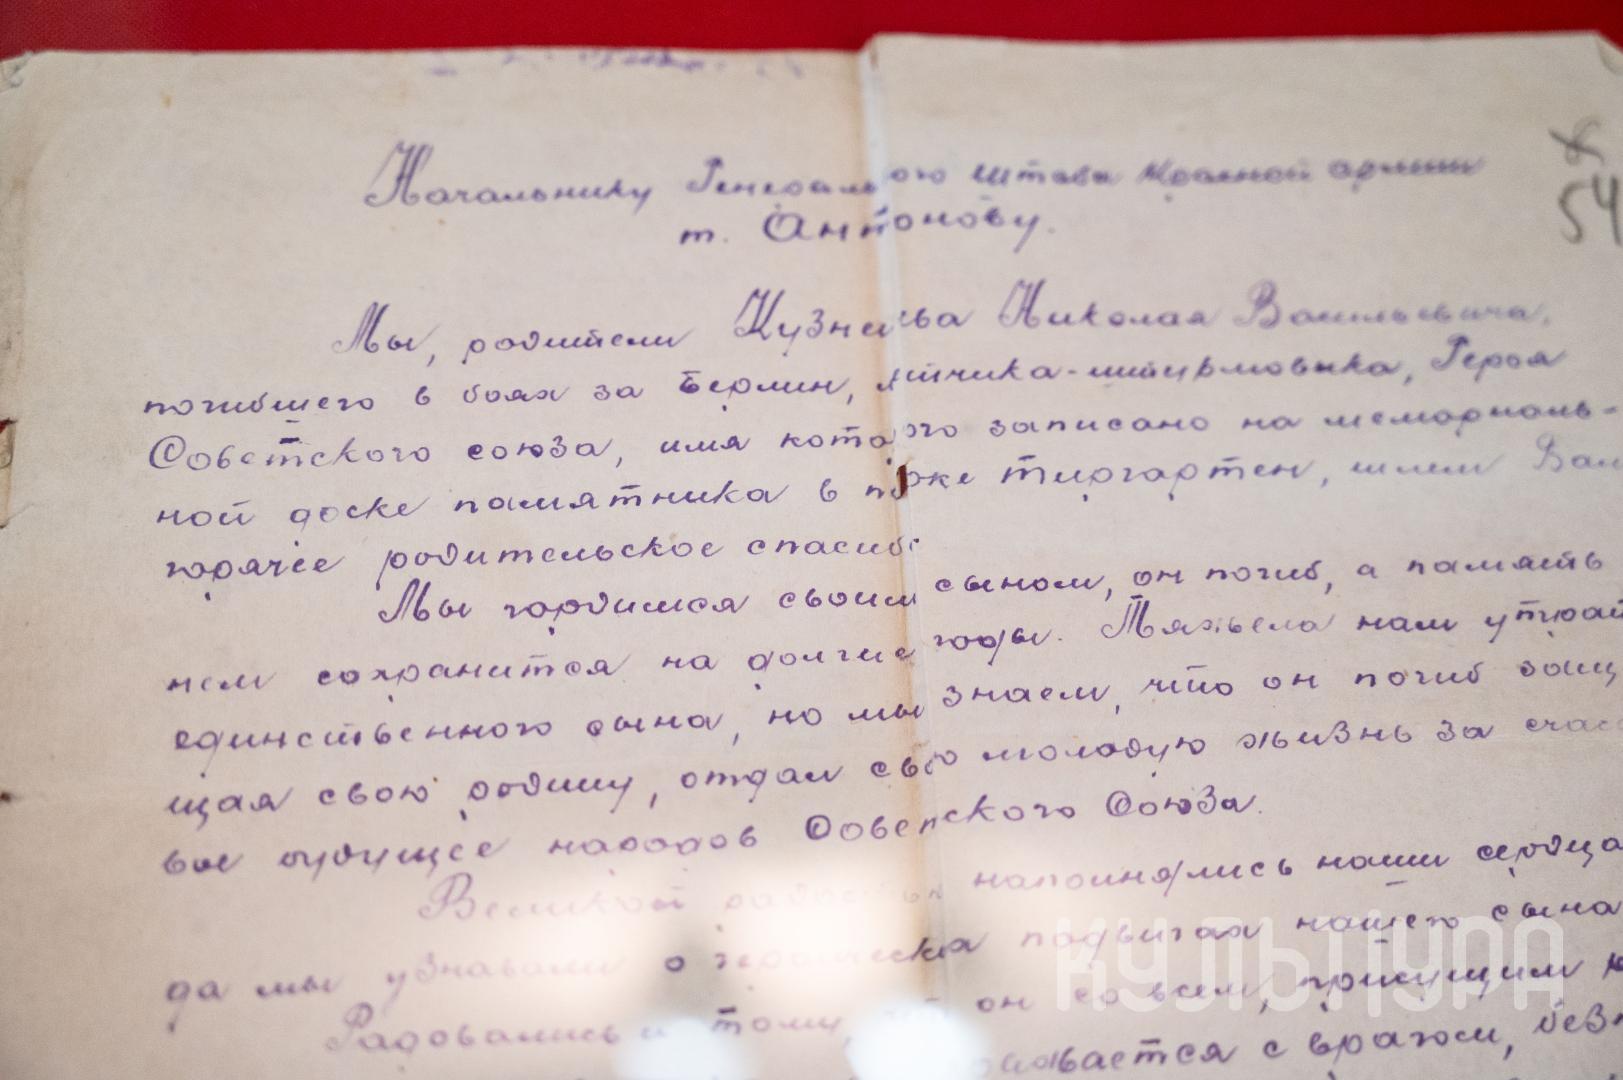 54
Начальнику Генерального штаба Красной армии
т. Антонову.
Мы, родители Кузнецова Николая Васильевича,
погибшего в боях за Берлин, лётчика-штурмовика, Героя
Советского союза, имя которого записано на мемориаль-
ной доске памятника в парке Тиргартен, шлем Вам
горячее родительское спасибо
Мы гордимся своим сыном, он погиб, а память
нем сохранится на долгие годы. Тяжело нам
единственного сына, но мы знаем, что он погиб защ
щая свою родину, отдал свою молодую жизнь за счас
вое будущее народов Советского Союза.
Великой радостью наполнялись наши сердца
да мы узнавали о геройских подвигах нашего сына
Радовались тому, что он со всем, присущим
с врагом,
КУЛЬТУРА